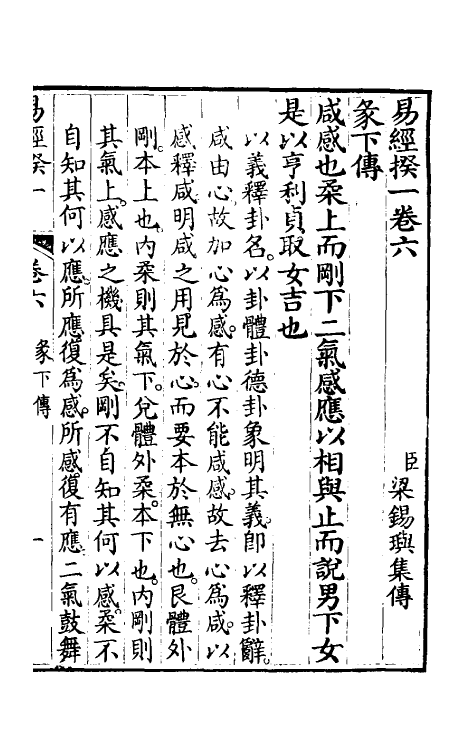 易經揆一卷六
臣梁錫璵集傳
彖下傳
咸感也柔上而剛下二氣感應以相與止而說男下女
是以亨利貞取女吉也
以義釋卦名。以卦體卦德卦象明其義卽以釋卦辭。
咸由心故加心為感。有心不能咸感。故去心為咸。以
感釋咸明咸之用見於心。而要本於無心也。艮體外
剛。本上也。內柔則其氣下。兌體外柔。本下也。內剛則
其氣上。感應之機具是矣。剛不自知其何以感。柔不
自知其何以應。所應復為感。所感復有應二氣鼓舞
易經揆一 卷六 彖下傳 一